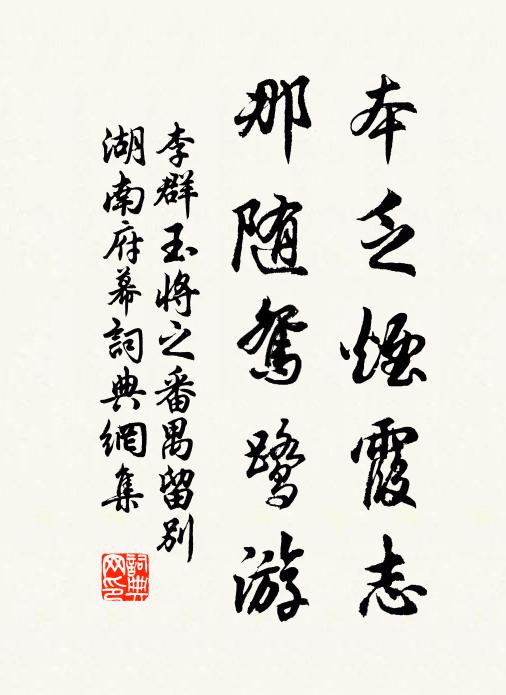 本乏煙霞志
那随鴛鷺游
李群玉将之番禺留别
湖南府幕詞典網集
詞典网印